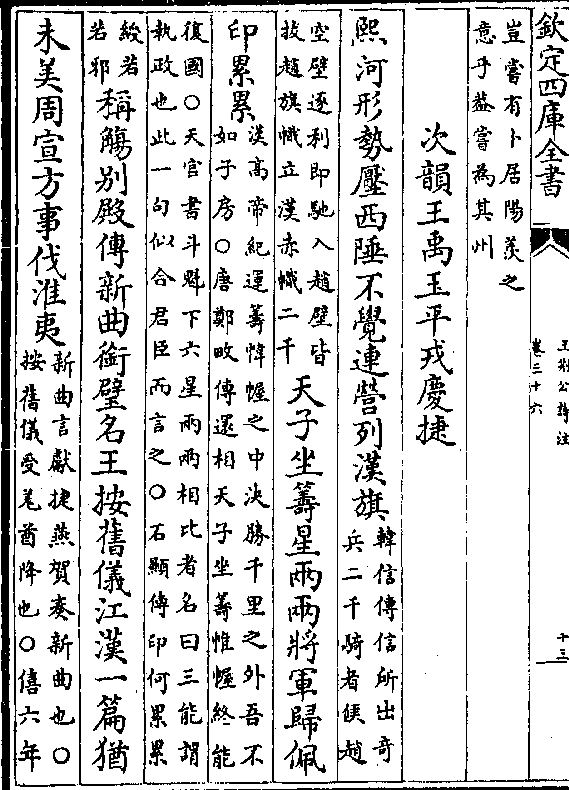 欽定四庫全書
王荆公詩注
卷三十六
十三
豈嘗有卜居陽羨之
意乎葢嘗為其州
次韻王禹玉平戎慶捷
熈河形勢壓西陲不覺連營列漢旗
韓信傳信所出奇
兵二千騎者候趙
空壁逐利即馳入趙壁皆
拔趙旗幟立漢赤幟二千
天子坐籌星兩兩將軍歸佩
印累累
漢高帝紀運籌幃幄之中決勝千里之外吾不
如子房○唐鄭畋傳還相天子坐籌惟幄終能
復國○天官書斗魁下六星兩兩相比者名曰三能謂
執政也此一句似合君臣而言之○石顯傳印何累累
綬若
若邪
稱觴别殿傳新曲銜璧名王按舊儀江漢一篇猶
未美周宣方事伐淮夷
新曲言獻捷燕賀奏新曲也○
按舊儀受羌酋降也○僖六年